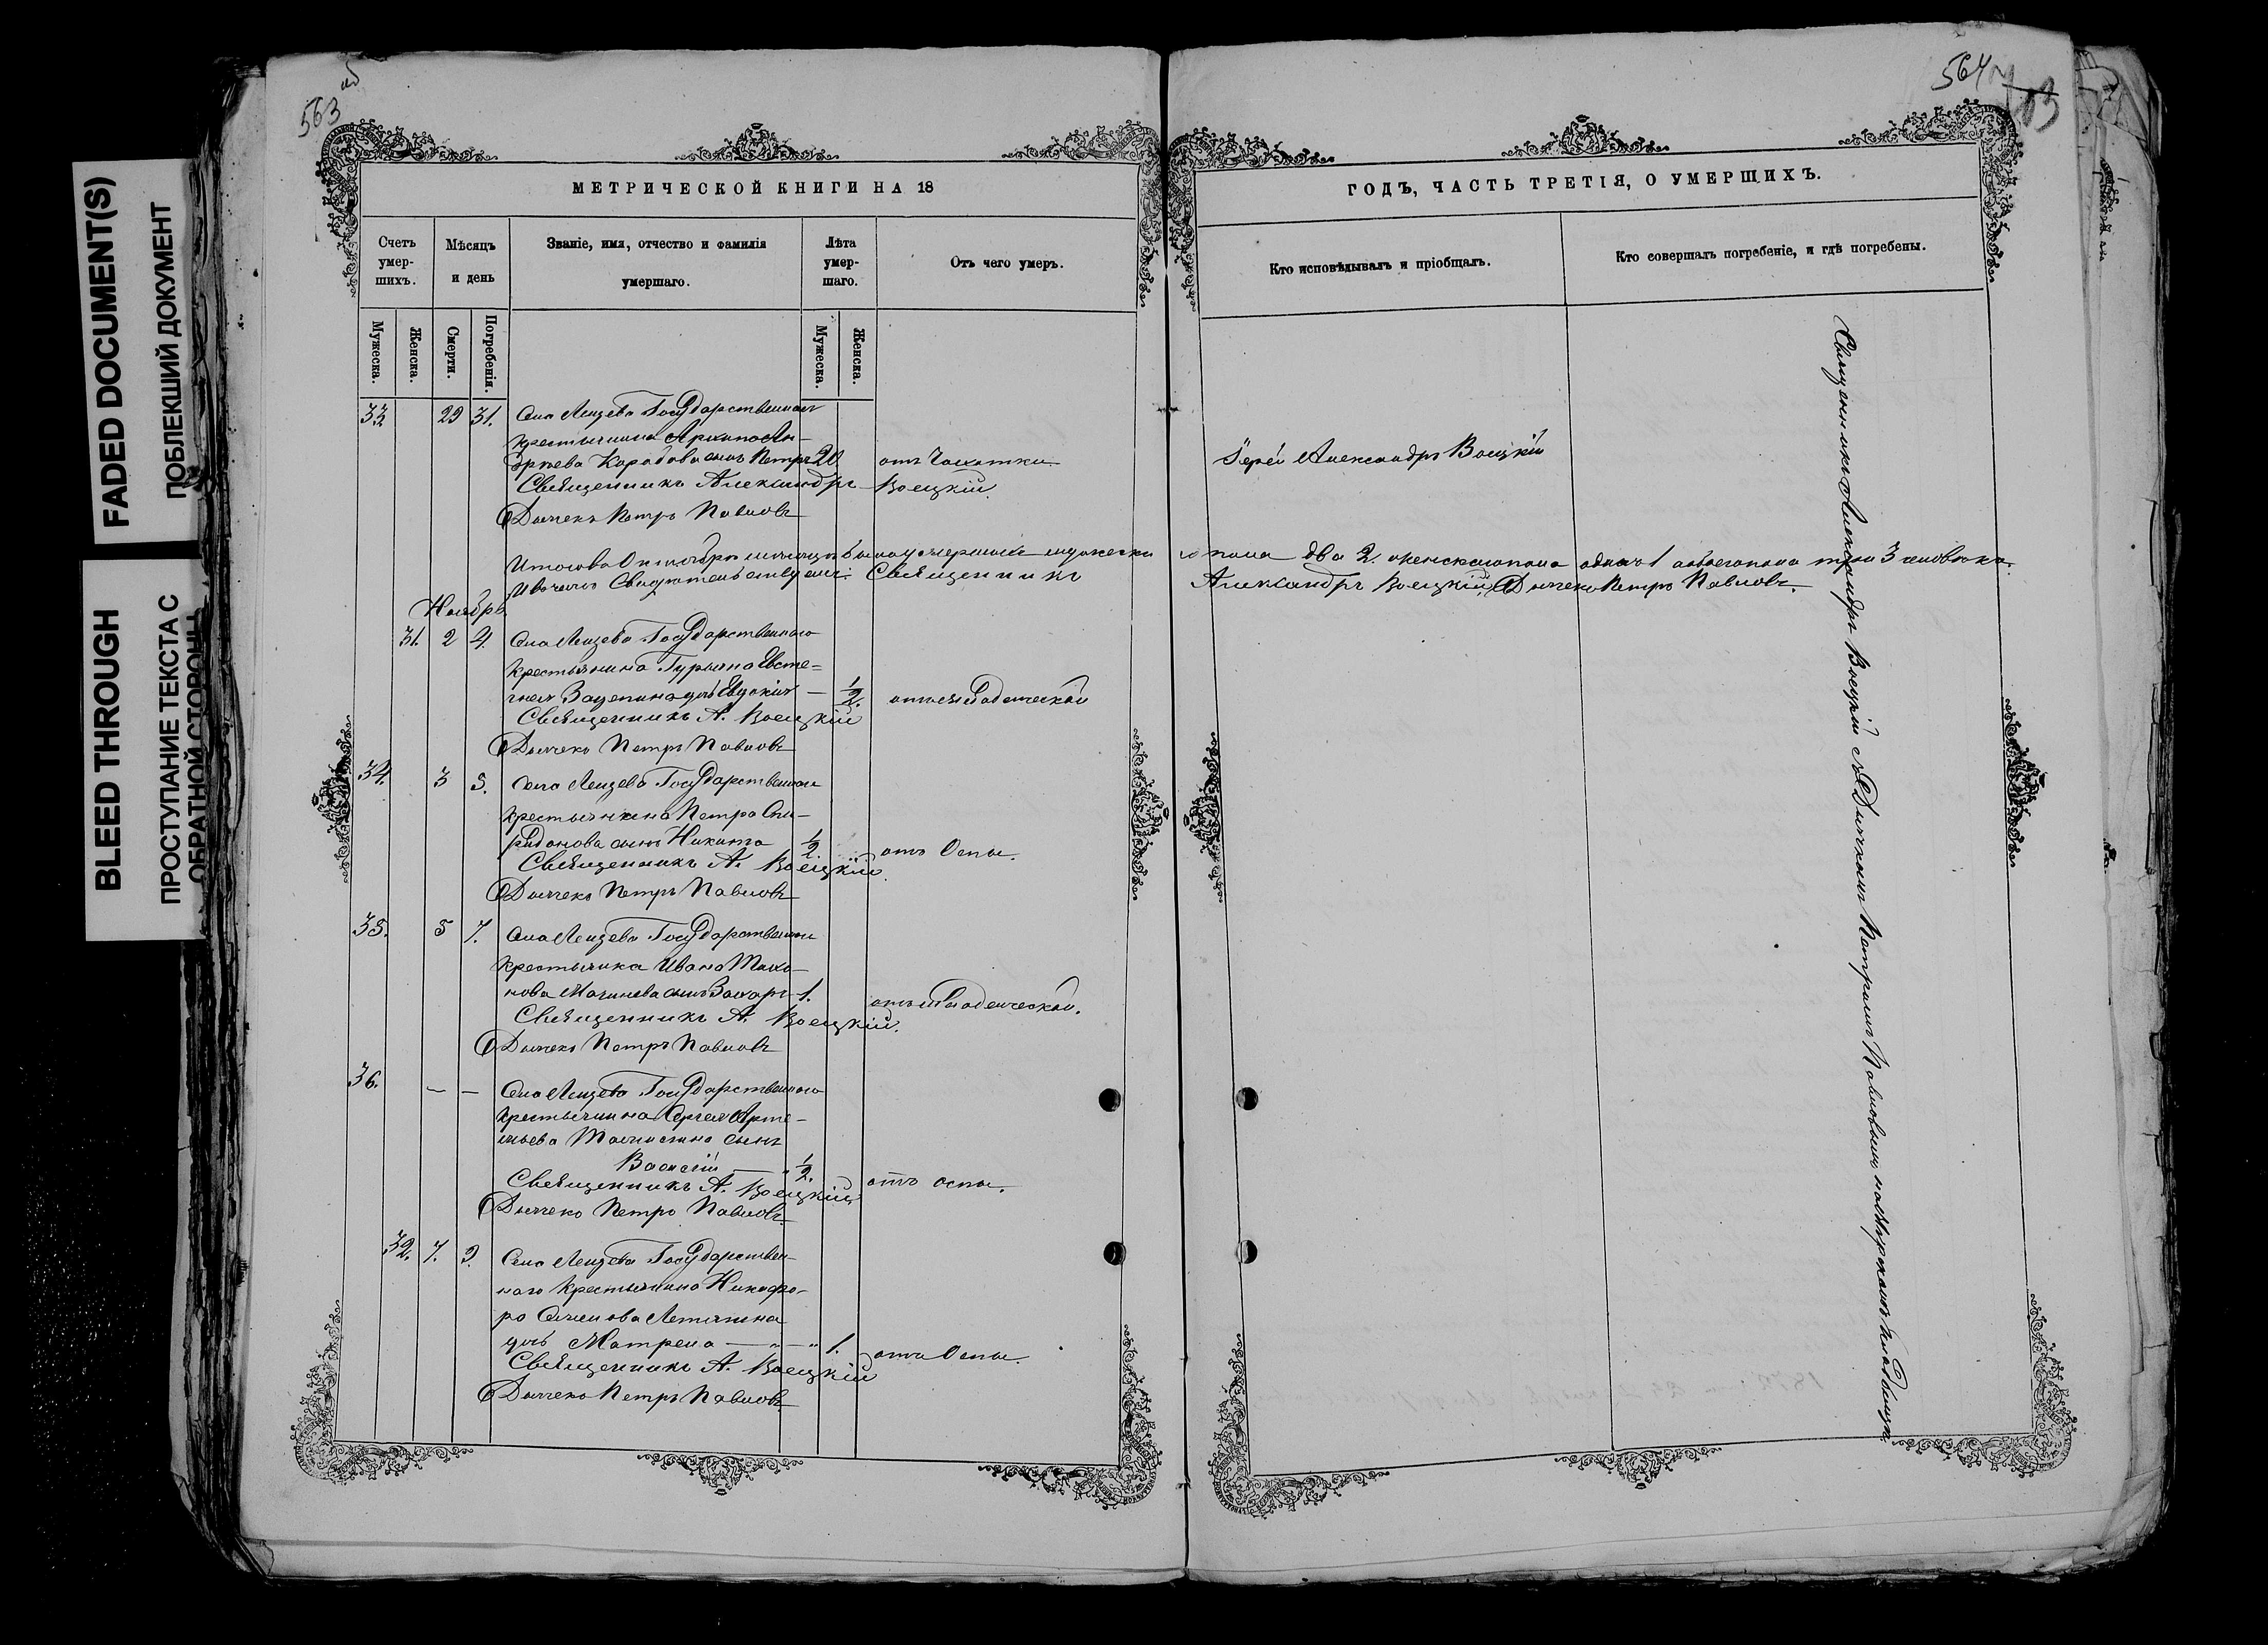 FADED DOCUMENT(S)
ПОБЛЕКШИЙ ДОКУМЕНТ
BLEED THROUGH
ПРОСТУПАНИЕ ТЕКСТА С
ОБРАТНОЙ СТОРОНЫ
563 об
МЕТРИЧЕСКОЙ КНИГИ НА 18
Счетъ умер-шихъ.
Мѣсяцъ и день
Званіе, имя, отчество и фамилія умершаго.
Лѣта умер-шаго.
Отъ чего умеръ.
Мужеска.
Женска.
Смерти.
Погребенія.
Мужеска.
Женска.
33 29 31. Села Государственнаго
крестьянина Ан-
дреева сынъ Петръ 20 отъ Чахотки
Священникъ Александръ Воецкій
Дьячекъ Петръ Павловъ
Итого въ Октябрѣ мѣсяцѣ умершихъ мужеска
въ чемъ Свидѣтельствуемъ: Священникъ
Ноябрь
31. 2 4. Села Государственнаго
крестьянина Евсте-
дочь Евдокія — 1/2. отъ младенческой
Священникъ А. Воецкій
Дьячекъ Петръ Павловъ
34. 3 5. Села Государственнаго
крестьянина Петра Спи-
ридонова сынъ Никита 1/2 отъ Оспы.
Священникъ А. Воецкій
Дьячекъ Петръ Павловъ
35. 5 7. Села Государственнаго
крестьянина Ивана
сынъ Захаръ 1. отъ младенческой.
Священникъ А. Воецкій.
Дьячекъ Петръ Павловъ
36. — — Села Государственнаго
крестьянина Сергея Арте-
мьева сынъ
Василій — 1/2. отъ оспы.
Священникъ А. Воецкій
Дьячекъ Петръ Павловъ
32. 7. 9. Села Государствен-
наго крестьянина Никифо-
ра Семенова
дочь Матрена — " — " 1. отъ Оспы.
Священникъ А. Воецкій
Дьячекъ Петръ Павловъ
564
ГОДЪ, ЧАСТЬ ТРЕТІЯ, О УМЕРШИХЪ.
Кто исповѣдывалъ и пріобщалъ.
Кто совершалъ погребеніе, и гдѣ погребены.
Іерей Александръ Воецкій
пола два 2. женскаго пола одна 1 обоего пола три 3 человѣка.
Александръ Воецкій, Дьячекъ Петръ Павловъ.
Священникъ Александръ Воецкій съ Дьячкомъ Петромъ Павловымъ на кладбищѣ.